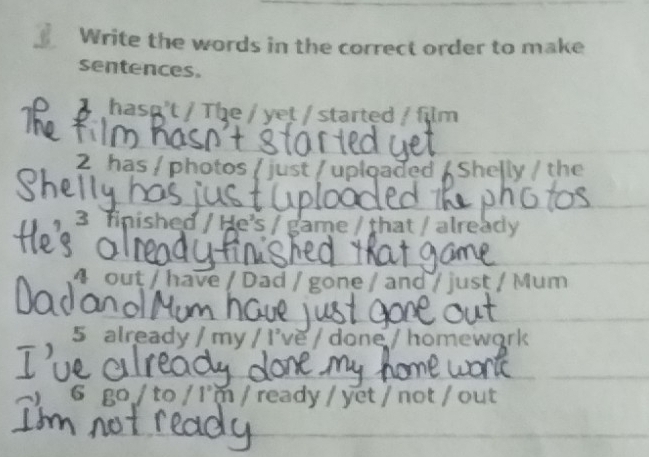 3 Write the words in the correct order to make
sentences.
1 hasn't / The / yet / started / film
The film hasn't started yet
2 has / photos / just / uploaded / Shelly / the
Shelly has just uploaded the photos
3 finished / He's / game / that / already
He's already finished that game
4 out / have / Dad / gone / and / just / Mum
Dad and Mum have just gone out
5 already / my / I've / done / homework
I've already done my home work
6 go / to / I'm / ready / yet / not / out
I'm not ready